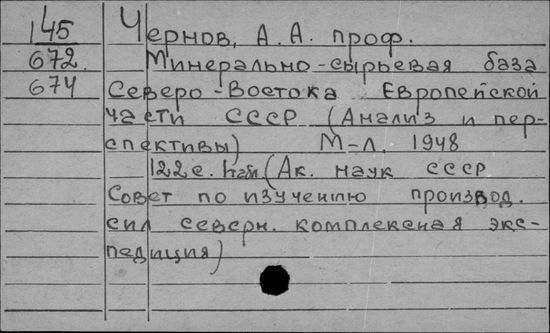 145 Чернов, А. А. проф.
672. Минерально-сырьевая база
674 Северо-Востока Европейской
части СССР (Анализ и пер-
спективы) М-Л. 1948
122с. (Ак. наук СССР
Совет по изучению производ.
сил северн. комплексная экс-
педиция)